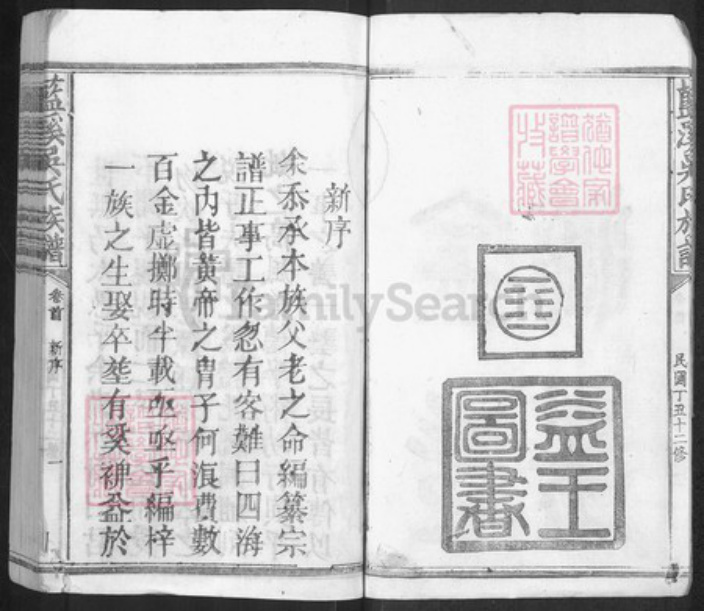 民國丁丑十二修
益王
圖書
新序
余忝承本族父老之命編纂宗
譜正事工作忽有客難曰四海
之內皆黃帝之胄子何浪費數
百金虛擲時半載亟亟乎編梓
一族之生娶卒塟有奚裨益於
藍溪吳氏族譜
卷首 新序 一
FamilySearch